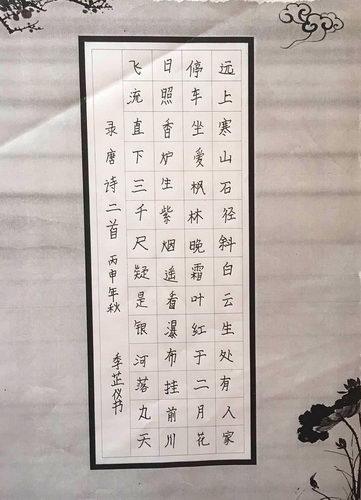 远上寒山石径斜白云生处有人家
停车坐爱枫林晚霜叶红于二月花
日照香炉生紫烟遥看瀑布挂前川
飞流直下三千尺疑是银河落九天
录唐诗二首 丙申年秋 季芷仪书